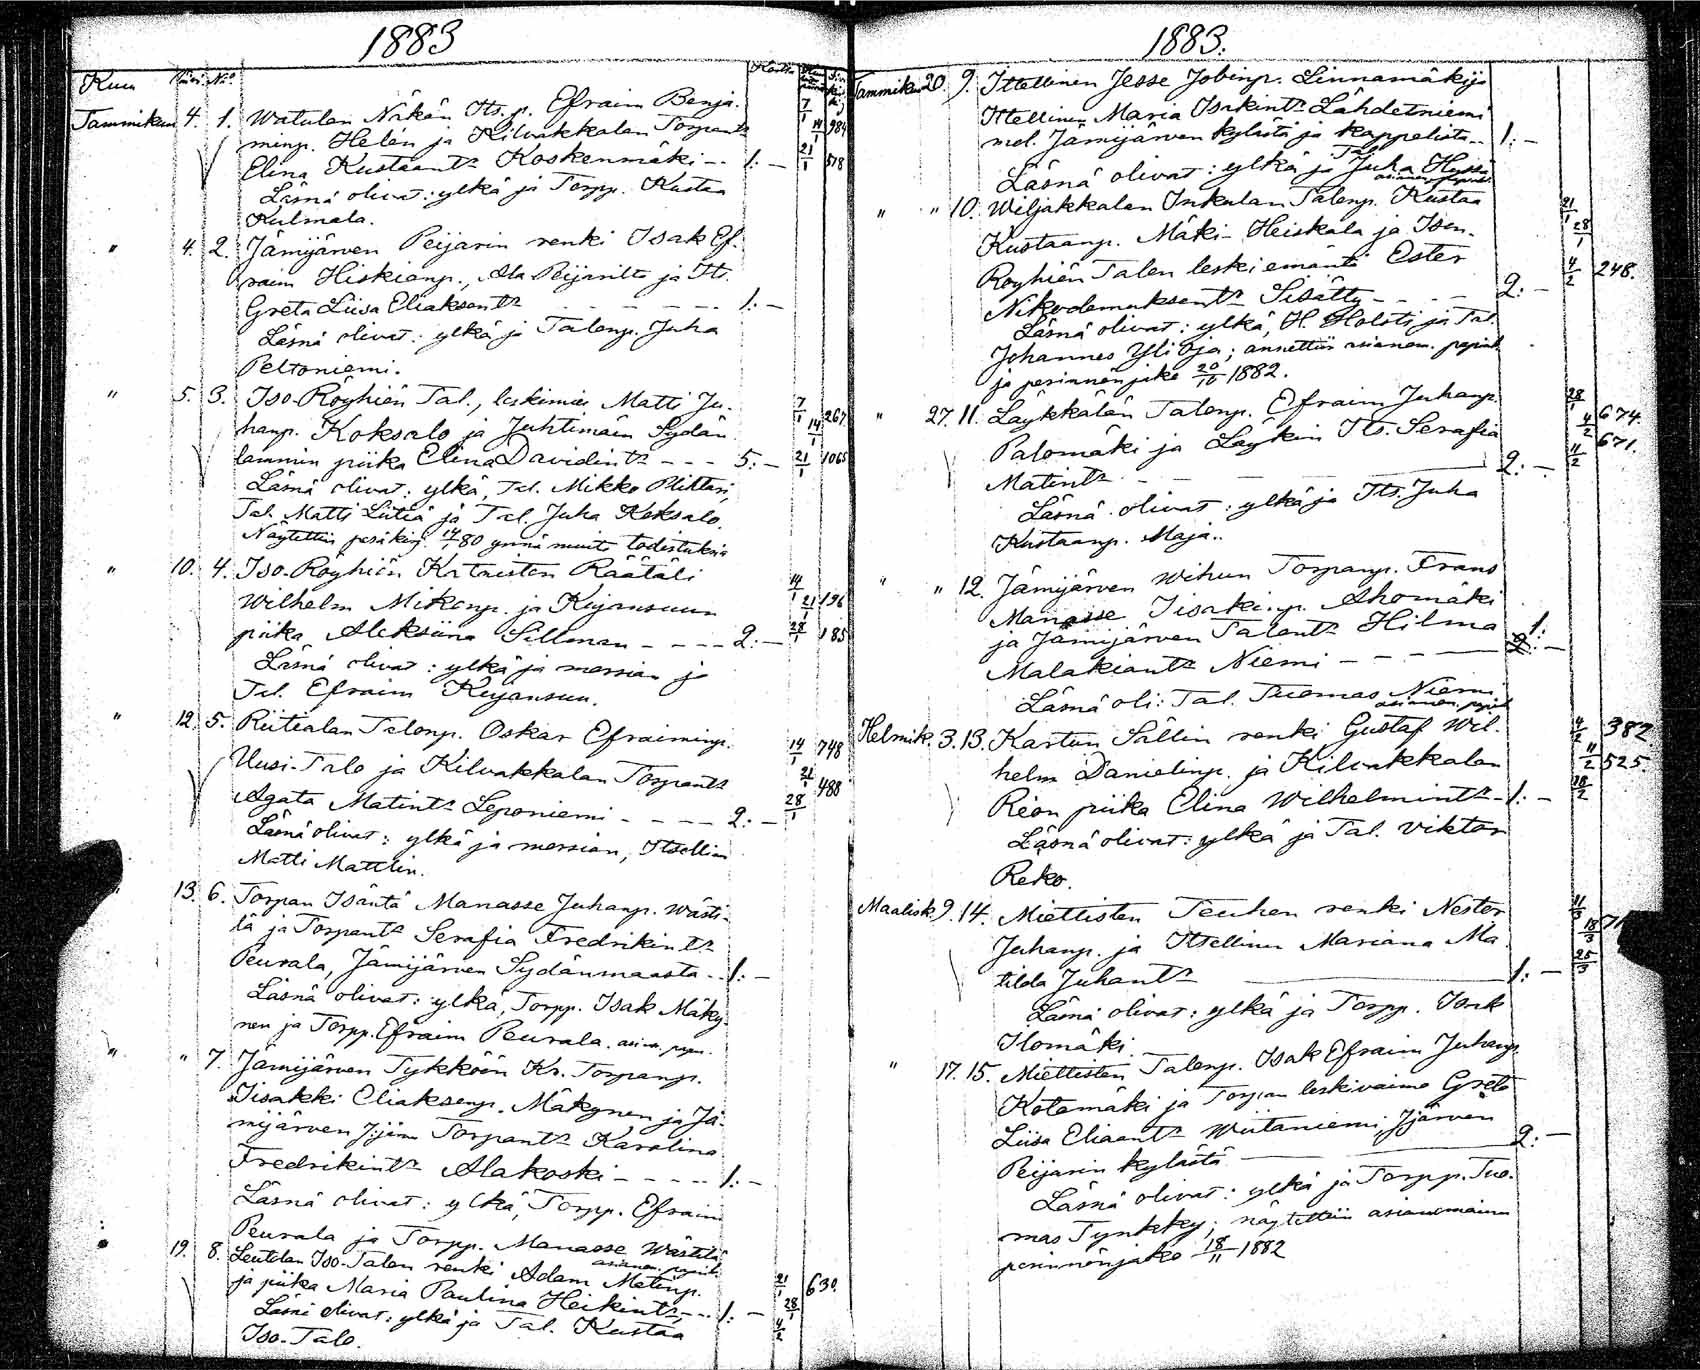 1883
Kuu Päivä No
Tammikuu 4. 1. Watulan Näkän Its. p. Efraim Benja-
minp. Helén ja Kilvakkalan Torpant.
Elina Kustaant. Koskenmäki -- 1:- 7/1 14/1 984 21/1 578
Läsnä olivat: ylkä ja Torpp. Kustaa
Kulmala.
" 4. 2. Jämijärven Peijarin renki Isak Ef-
raim Hiskianp., Ala Peijarilta ja Its.
Greta Liisa Eliaksent. - - - - - 1:-
Läsnä olivat: ylkä ja Talonp. Juha
Peltoniemi.
" 5. 3. Iso-Röyhiön Tal., leskimies Matti Ju-
hanp. Koksalo ja Juhtimäen Sydän-
lammin piika Elina Davidint. - - - 5:- 7/1 267 14/1 21/1 1065
Läsnä olivat: ylkä, Tal. Mikko
Tal. Matti ja Tal. Juha Koksalo.
Näytettiin pesäkirj. 80 ynnä muut todistuksia
" 10. 4. Iso-Röyhiön Räätäli
Wilhelm Mikonp. ja Kujansuun
piika Aleksiina Sillman - - - - 2:- 14/1 21/1 196 28/1 185
Läsnä olivat: ylkä ja morsian ja
Tal. Efraim Kujansuu.
" 12. 5. Riitialan Talonp. Oskar Efraiminp.
Uusi-Talo ja Kilvakkalan Torpant.
Agata Matint. Leponiemi - - - - 2:- 14/1 748 21/1 488 28/1
Läsnä olivat: ylkä ja morsian, Itsellinen
Matti Mattlin.
" 13. 6. Torpan Isäntä Manasse Juhanp. Wästi-
lä ja Torpant. Serafia Fredrikint.
Peurala, Jämijärven Sydänmaasta -- 1:-
Läsnä olivat: ylkä, Torpp. Isak Mäky-
nen ja Torpp. Efraim Peurala.
" " 7. Jämijärven Tykköön Kr. Torpanp.
Iisakki Eliaksenp. Mäkynen ja Jä-
mijärven Torpant. Karolina
Fredrikint. Alakoski - - - - - 1:-
Läsnä olivat: ylkä, Torpp. Efraim
Peurala ja Torpp. Manasse Wästilä
19. 8. Leutolan Iso-Talon renki Adam Matinp.
ja piika Maria Paulina Heikint. -- 1:- 21/1 630. 28/1 4/2
Läsnä olivat: ylkä ja Tal. Kustaa
Iso-Talo.
1883.
Tammikuu 20. 9. Ittellinen Jesse Jobinp. Linnamäki ja
Ittellinen Maria Isakint. Lähdetniemi
mol. Jämijärven kylästä ja kappelista -- 1:-
Läsnä olivat: ylkä ja Tal. Juha
" " 10. Wiljakkalan Inkulan Talonp. Kustaa
Kustaanp. Mäki-Heiskala ja Ison-
Röyhiön Talon leskiemäntä Ester
Nikodemuksent. Sisättö - - - - 2:- 21/1 28/1 4/2 248.
Läsnä olivat: ylkä, H. Holsti ja Tal.
Johannes Yli Oja; annettiin asianom. papint.
ja perinnönjako 20/10 1882.
" 27. 11. Läykkälän Talonp. Efraim Juhanp.
Palomäki ja Läykin Its. Serafia
Matint. - - - 2:- 28/1 674. 4/2 671. 11/2
Läsnä olivat: ylkä ja Its. Juha
Kustaanp. Maja.
" " 12. Jämijärven Wihun Torpanp. Frans
Manasse Iisakinp. Ahomäki
ja Jämijärven Talont. Hilma
Malakiant. Niemi - - - 1:-
Läsnä oli: Tal. Tuomas Niemi
asianom. papint.
Helmik. 3. 13. Kartun Sällin renki Gustaf Wil-
helm Danielinp. ja Kilvakkalan
Reon piika Elina Wilhelmint. - 1:- 4/2 382 11/2 525. 18/2
Läsnä olivat: ylkä ja Tal. Viktor
Reko.
Maalisk. 9. 14. Miettisten Teuhon renki Nestor
Juhanp. ja Ittellinen Mariana Ma-
tilda Juhant. 1:- 11/3 18/3 71 25/3
Läsnä olivat: ylkä ja Torpp. Isak
Ilomäki.
" 17. 15. Miettisten Talonp. Isak Efraim Juhanp.
Kotamäki ja Torpan leskivaimo Greta
Liisa Eliaant. Wiitaniemi, Jjärven
Peijarin kylästä 2:-
Läsnä olivat: ylkä ja Torpp. Tuo-
mas Tynkky; näytettiin asianomainen
perinnönjako 18/11 1882